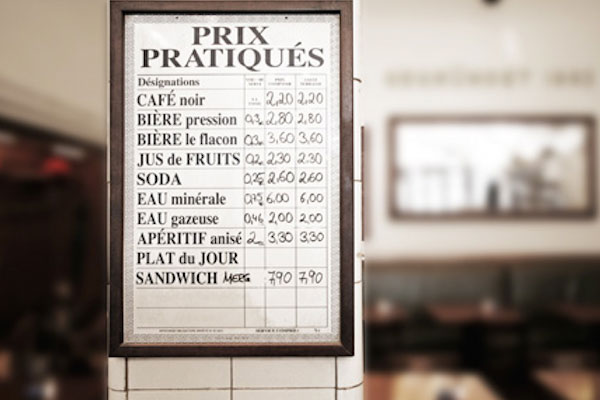 PRIX
PRATIQUÉS
Désignations
CAFÉ noir 2,20 2,20
BIÈRE pression 2,80 2,80
BIÈRE le flacon 3,60 3,60
JUS de FRUITS 0,2 2,30 2.30
SODA 0,25 2,60 2,60
EAU minérale 6.00 6,00
EAU gazeuse 0,46 2,00 2,00
APÉRITIF anisé 2 3,30 3,30
PLAT du JOUR
SANDWICH 7,90 7,90
SERVICE COMPRIS